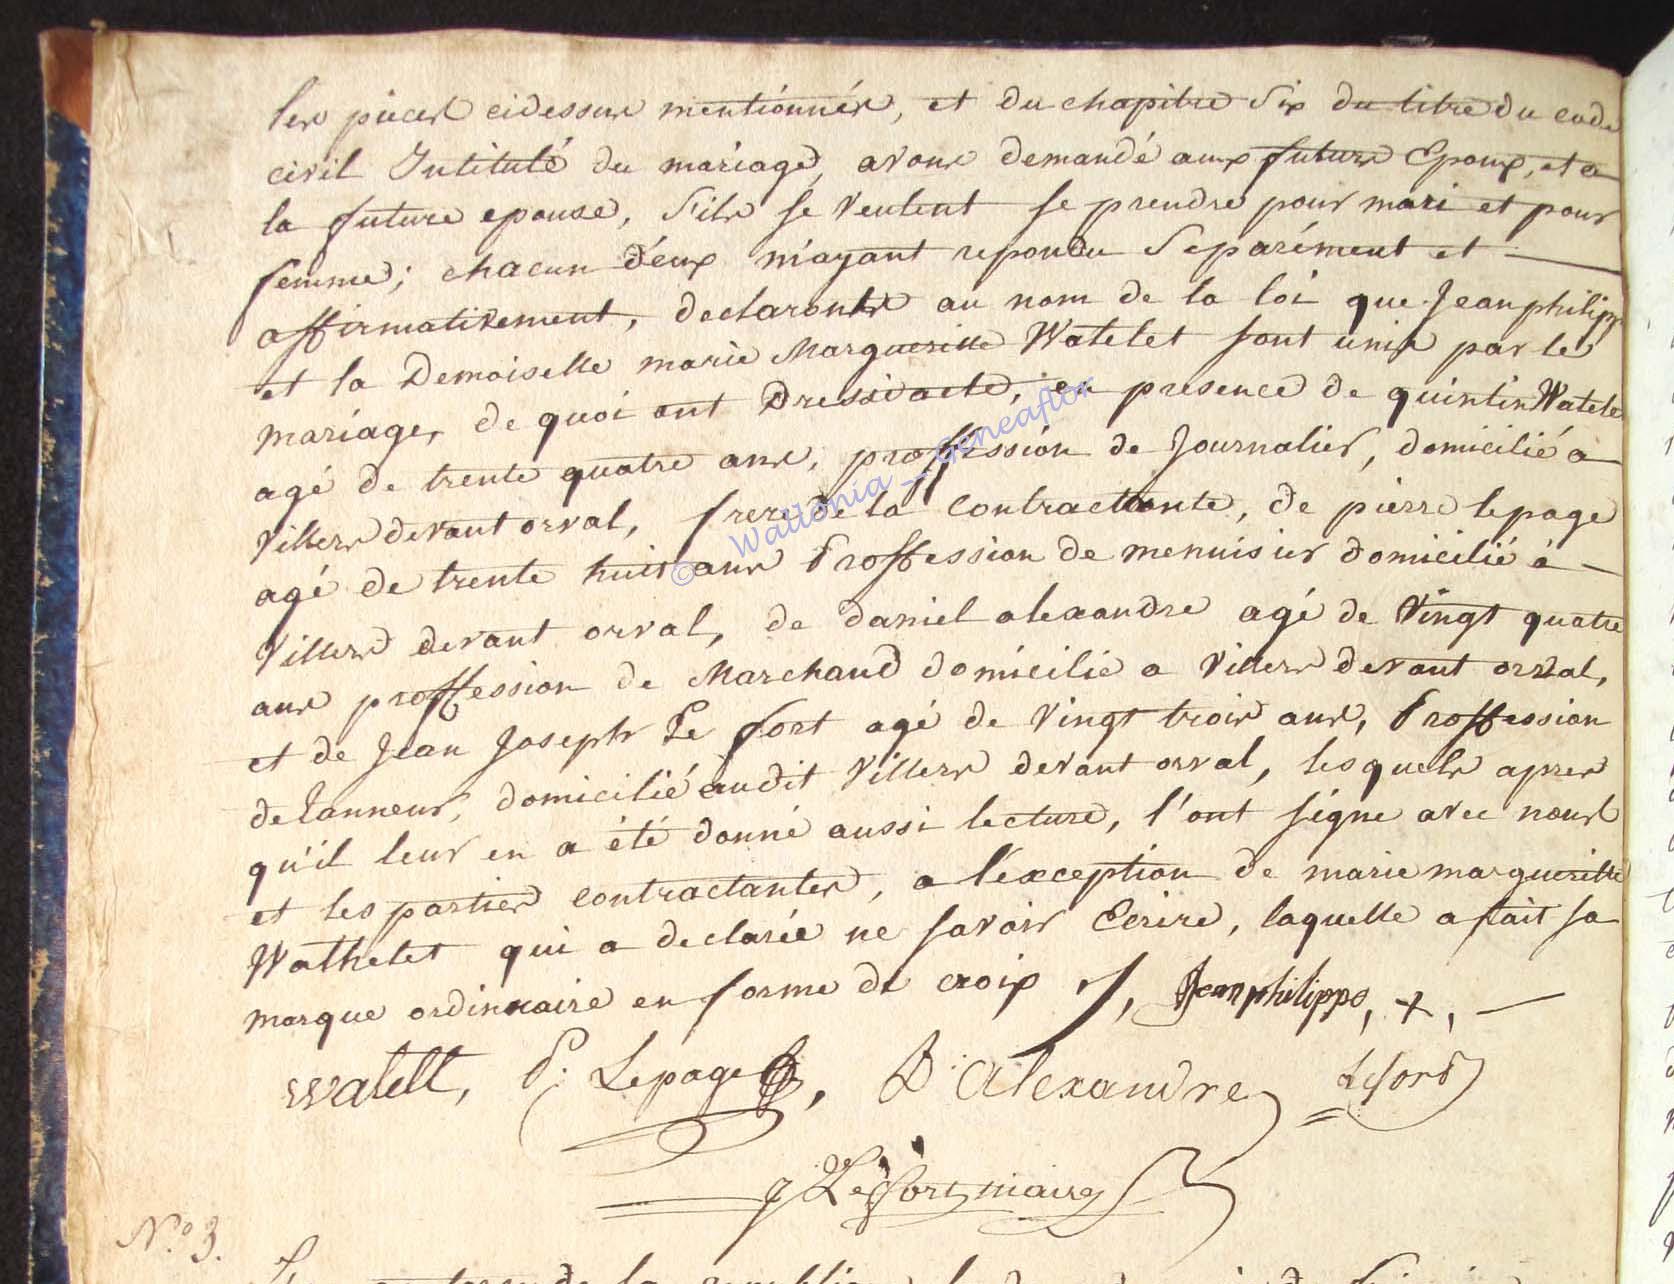 les pieces cidessus mentionnés, et du chapitre Six du titre du code
civil Intitulé du mariage, avons demandé aux futurs Epoux, et a
la future epouse, s'ils se veulent se prendre pour mari et pour
femme; chacun d'eux m'ayant repondu Separément et
affirmativement, declarons au nom de la loi que Jean philipp
et la Demoiselle marie Marguerite Watelet sont unis par le
mariage, de quoi ont Dressé acte, en presence de quintin Watele
agé de trente quatre ans, proffession de Journalier, domicilié a
Villers devant orval, frere de la contractante, de pierre lepage
agé de trente huit ans Proffession de menuisier domicilié à
Villers devant orval, de daniel alexandre agé de Vingt quatre
ans proffession de Marchand domicilié a Villers devant orval,
et de Jean Joseph Le fort agé de Vingt trois ans, Proffession
de Tanneur, domicilié audit Villers devant orval, lesquels apres
qu'il leur en a été donné aussi lecture, l'ont signe avec nous
et les parties contractantes, a l'éxception de marie margueritte
Wathelet qui a declarée ne savoir Ecrire, laquelle a fait sa
marque ordinnaire en forme de croix /, Jean philippe, +, —
watelet, P. Lepage, D. Alexandre lefort
J Le fort maire
N.o 3.
© Wallonia _ Geneaflor